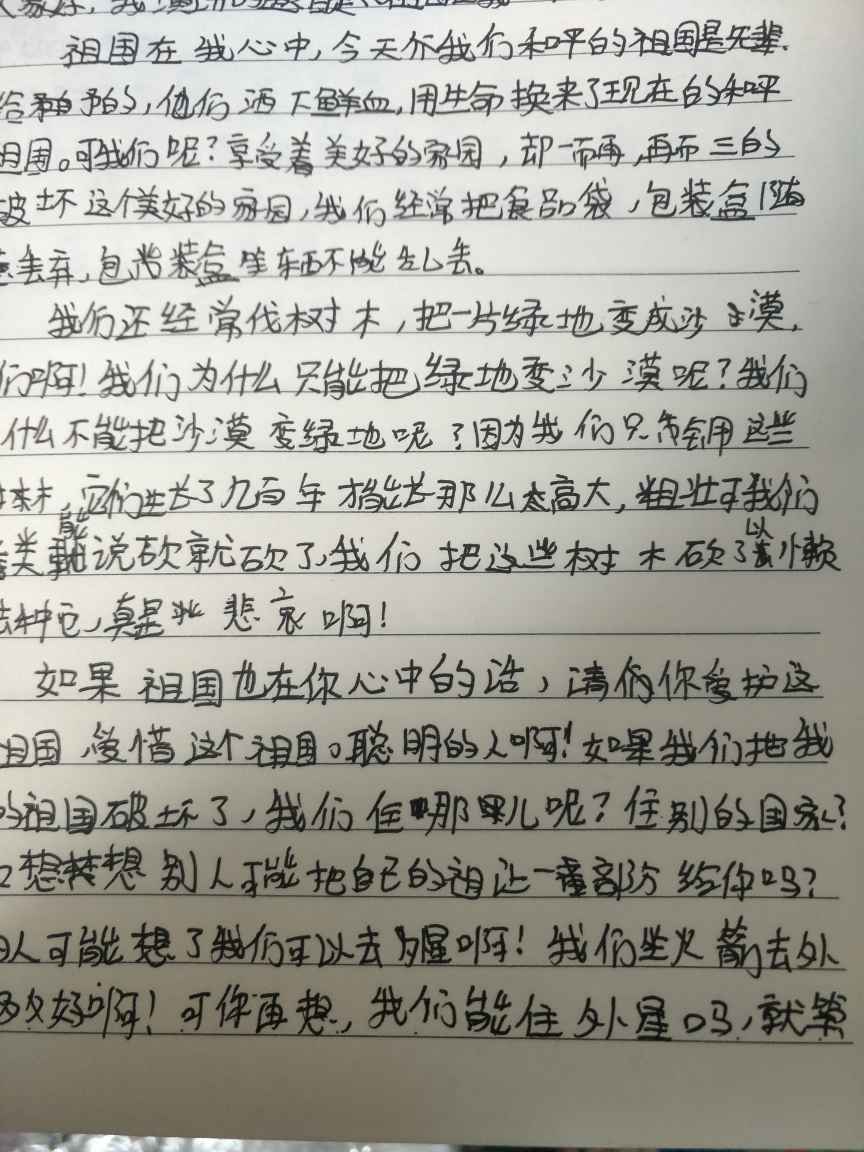 祖国在我心中,今天介我们和平的祖国是先辈.
给予的,他们洒下鲜血,用生命换来了现在的和平
祖国。可我们呢?享受着美好的家园,却一而再,再而三的
破坏这个美好的家园,我们经常把食品袋,包装盒随
意丢弃,包装盒等东西不能乱丢。
我们还经常伐树木,把一片绿地变成沙漠,
们啊!我们为什么只能把绿地变沙漠呢?我们
什么不能把沙漠变绿地呢?因为我们只会用这些
木,它们生长了几百年才能长那么高大,粗壮可我们
类能说砍就砍了,我们把这些树木砍了以
去种它,真是悲哀啊!
如果祖国也在你心中的话,请你爱护这
祖国,爱惜这个祖国。聪明的人啊!如果我们把我
的祖国破坏了,我们住哪儿呢?住别的国家?
想想别人可能把自己的祖让一部分给你吗?
人可能想了我们可以去外星啊!我们坐火箭去外
多好啊!可你再想,我们能住外星吗,就算